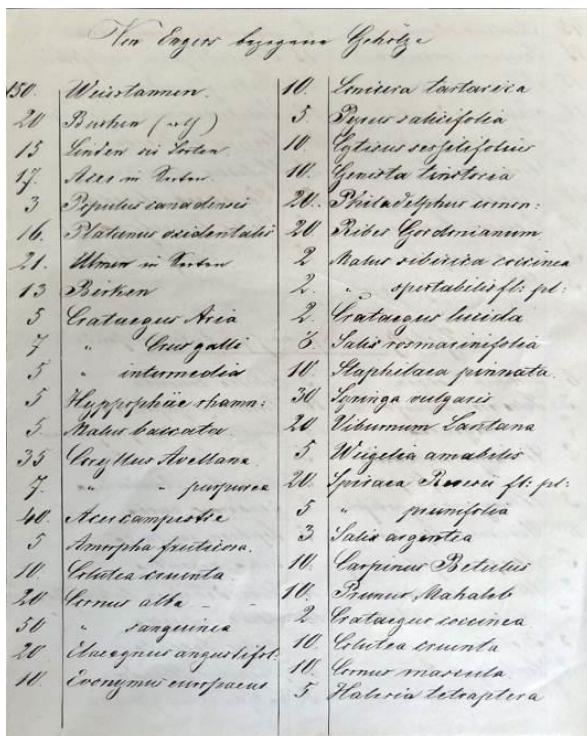 Von Engers bezogene Gehölze
150. Weisstannen.
20 Buchen
15 Linden in Sorten.
17. Acer in Sorten.
3 Populus canadensis
16. Platanus occidentalis
21. Ulmen in Sorten
13 Birken
5 Crataegus Aria
7 " Crus galli
5 " intermedia
5 Hyppophäe rhamn:
5. Malus baccata.
35 Coryllus Avellana.
7. " " purpurea
40. Acer campestre
5 Amorpha fruticosa.
10. Colutea cruenta.
20 Cornus alba - -
50 " sanguinea
20 Elaeagnus angustifol:
10. Evonymus europaeus
10. Lonicera tartarica
5. Pyrus salicifolia
10. Cytisus sessilifolius
10. Genista tinctoria
20. Philadelphus coron:
20 Ribes Gordonianum
2 Malus sibirica coccinea
2. " spectabilis fl: pl:
2. Crataegus lucida
Salix rosmarinifolia
10. Staphilaea pinnata.
30 Syringa vulgaris
20 Viburnum Lantana
5 Weigelia amabilis
20. Spiraea Revesii fl: pl:
5 " prunifolia
3. Salix argentea
10. Carpinus Betulus
10. Prunus Mahaleb
2 Crataegus coccinea
10. Colutea cruenta
10. Cornus mascula.
5 Halesia tetraptera